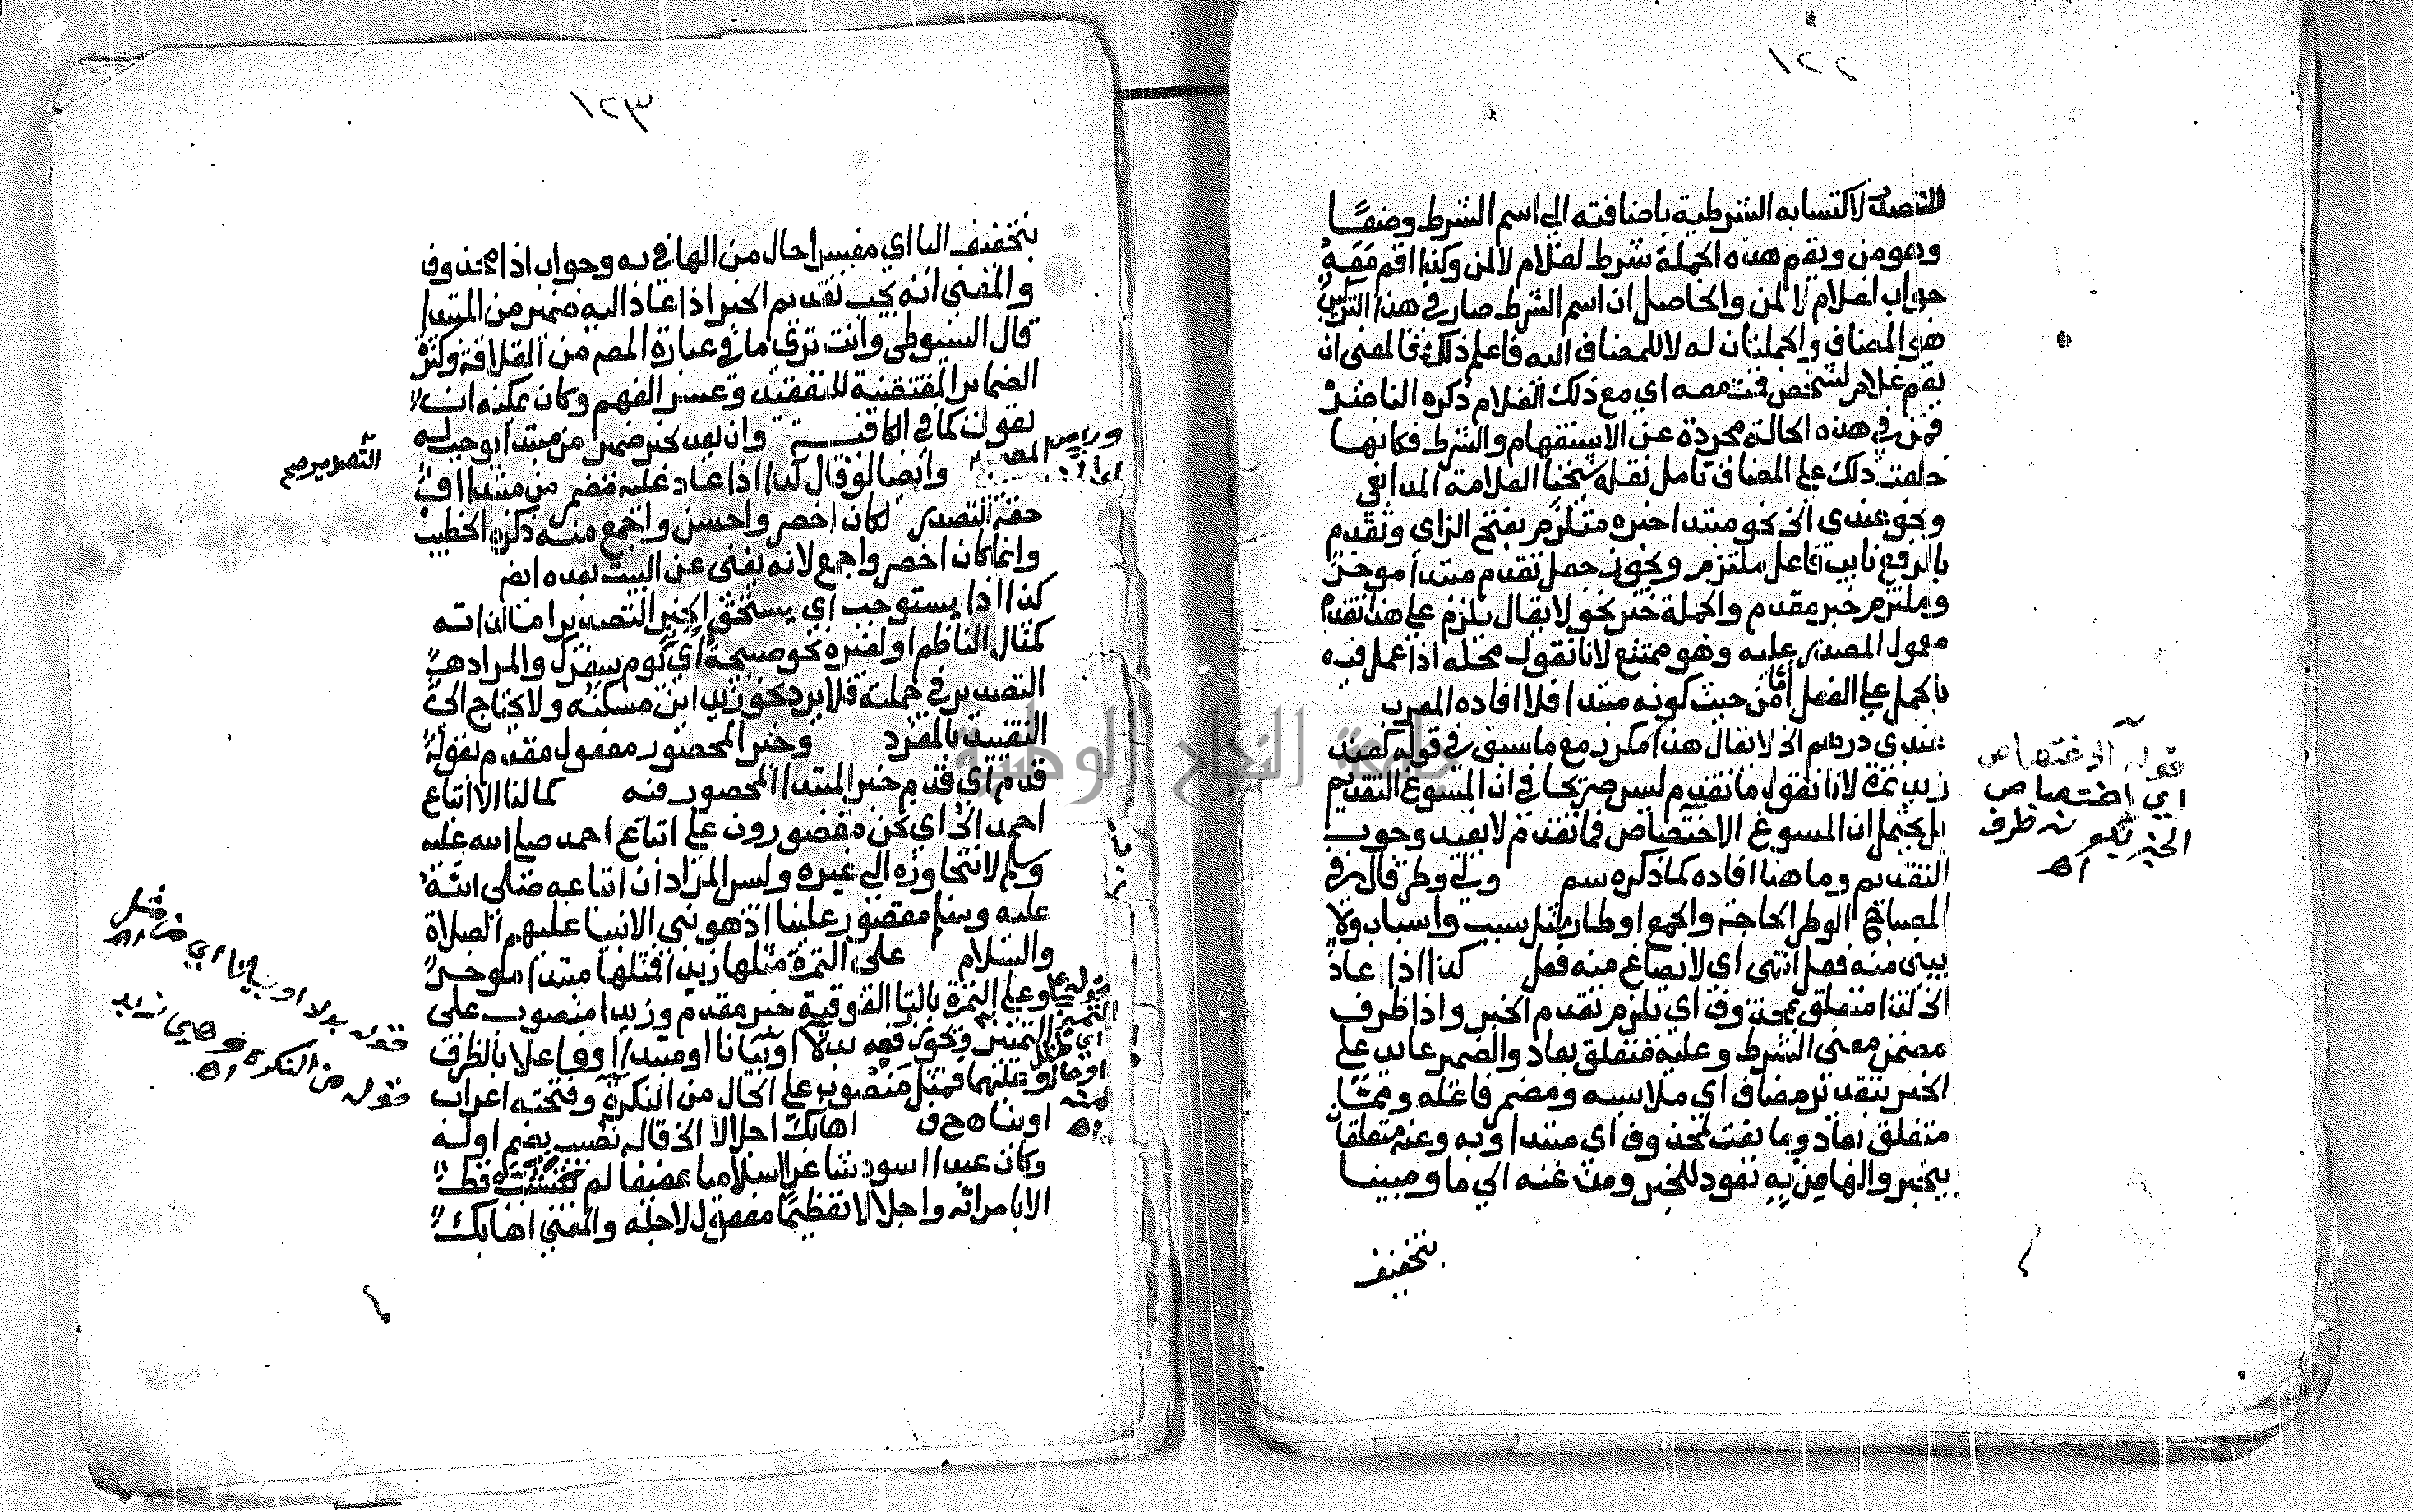 ١٢٢
التصدير لاكتسابه الشرطية باضافته الى اسم الشرط وضفا
وهو من ويقم هذه الجملة شرط لغلام لا لمن وكذا اقم معه
جواب لغلام لا لمن والحاصل ان اسم الشرط صار في هذا التركيب
هو المضاف والجملتان له لا للمضاف اليه فاعلم ذلك فالمعنى ان
يقم غلام لشخص قمت معه اي مع ذلك الغلام ذكره
فمن في هذه الحالة مجردة عن الاستفهام والشرط فكانها
خلعت ذلك على المضاف تامل نقله شيخنا العلامة المدابغي
ونحو عندي الخ نحو مبتدا خبره ملتزم بفتح الزاي وتقدم
بالرفع نايب فاعل ملتزم ويجوز جعل تقدم مبتدا موخر
وملتزم خبر مقدم والجملة خبر نحو لا يقال يلزم على هذا تقدم
معمول المصدر عليه وهو ممتنع لانا نقول محله اذا عمل فيه
بالحمل على الفعل اما من حيث كونه مبتدا فلا افاده المعرب
عندي درهم الخ لا يقال هذا مكرر مع ما سبق في قوله كعند
زيد نمرة لانا نقول ما تقدم ليس صريحا في ان المسوغ التقديم
بل يحتمل ان المسوغ الاختصاص فما تقدم لا يفيد وجوب
التقديم وما هنا افاده كما ذكره سم ولي وطر قال في
المصباح الوطر الحاجة والجمع اوطار مثل سبب واسباب ولا
يبنى منه فعل انتهى اي لا يصاغ منه فعل كذا اذا عاد
الخ كذا متعلق بمحذوف اي يلزم تقدم الخبر واذا ظرف
مضمن معنى الشرط وعليه متعلق بعاد والضمير عايد على
الخبر بتقدير مضاف اي ملابسه ومضمر فاعله ومما
متعلق بعاد وما نعت لمحذوف اي مبتدا وبه وعنه متعلقان
بيخبر والها من به تعود للخبر ومن عنه الى ما ومبينا
بتخفيف
قوله الاختصاص
اي اختصاص
الخبر بكونه ظرف
اهـ
١٢٣
بتخفيف اليا اي مفسرا حال من الها في به وجواب اذا محذوف
والمعنى انه يجب تقديم الخبر اذا عاد اليه ضمير من المبتدا
قال السيوطي وانت ترى ما في عبارة المصـ من القلاقة وكثرة
الضماير المقتضية للتعقيد وعسر الفهم وكان يمكنه ان
يقول كما في الكافية وان يعد لخبر ضمير من مبتدا يوجب له
وايضا لو قال كذا اذا عاد عليه مضمر من مبتدا
حقه التصدير لكان اخصر واحسن واجمع منه ذكره الخطيب
وانما كان اخصر واجمع لانه يغني عن البيت بعده ايضـ
كذا اذا يستوجب اي يستحق الخبر التصدير اما لذاته
كمثال الناظم او لغيره نحو صبيحة اي يوم سفرك والمراد
التصدير في جملته فلا يرد نحو زيد اين مسكنه ولا يحتاج الى
التقييد بالمفرد وخبر المحصور مفعول مقدم بقوله
قدم اي قدم خبر المبتدا المحصور فيه كما لنا الا اتباع
احمد الخ اي نحن مقصورون على اتباع احمد صلى الله عليه
وسلم لا نتجاوزه الى غيره وليس المراد ان اتباعه صلى الله
عليه وسلم مقصور علينا اذ هو نبي الانبيا عليهم الصلاة
والسلام على التمرة مثلها زيدا فمثلها مبتدا موخر
وعلى التمرة بالتا الفوقية خبر مقدم وزيدا منصوب على
التمييز ويجوز رفعه بدلا او بيانا او مبتدا او فاعلا بالظرف
عليهما فمثل منصوب على الحال من النكرة وفتحته اعراب
او بنا اهـ ح ف اهابك اجلالا الخ قاله نصيب بضم اوله
وكان عبدا اسود شاعرا اسلاميا عفيفا لم قط
الا بامراته واجلالا تعظيما مفعول لاجله والمعنى اهابك
التصدير صح
قوله بدلا او بيانا اي من مثل اهـ
قوله من النكرة وهي زيد اهـ